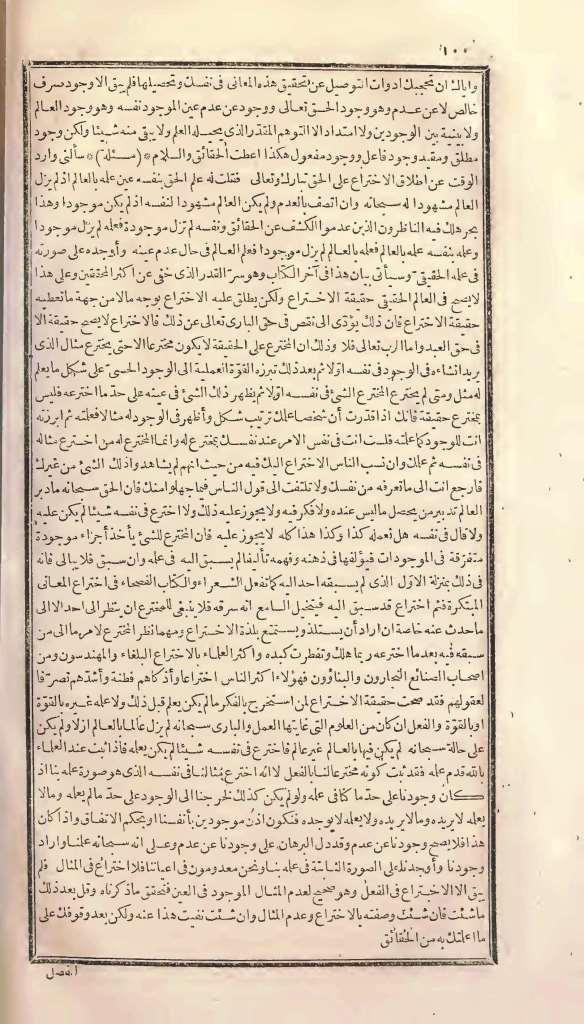 ١٠٠
واياك ان تحجبك ادوات التوصيل عن تحقيق هذه المعانى فى نفسك وتحصيلها فلم يبق الا وجود صرف
خالص لا عن عدم وهو وجود الحق تعالى ووجود عن عدم عين الموجود نفسه وهو وجود العالم
ولا بينية بين الوجودين ولا امتداد الا التوهم المقدر الذى يحيله العلم ولا يبقى منه شيئا ولكن وجود
مطلق ومقيد وجود فاعل ووجود مفعول هكذا اعطت الحقائق والسلام * (مسئلة) * سألنى وارد
الوقت عن اطلاق الاختراع على الحق تبارك وتعالى فقلت له علم الحق بنفسه عين علمه بالعالم اذ لم يزل
العالم مشهودا له سبحانه وان اتصف بالعدم ولم يكن العالم مشهودا لنفسه اذ لم يكن موجودا وهذا
بحر هلك فيه الناظرون الذين عدموا الكشف عن الحقائق ونفسه لم تزل موجودة فعلمه لم يزل موجودا
وعلمه بنفسه علمه بالعالم فعلمه بالعالم لم يزل موجودا فعلم العالم فى حال عدم عينه وأوجده على صورته
فى علمه الحقيقى وسيأتى بيان هذا فى آخر الكتاب وهو سر القدر الذى خفى عن اكثر المحققين وعلى هذا
لا يصح فى العالم الحقيقى حقيقة الاختراع ولكن يطلق عليه الاختراع بوجه ما لا من جهة ما تعطيه
حقيقة الاختراع فان ذلك يؤدى الى نقص فى حق البارى تعالى عن ذلك فالاختراع لا يصح حقيقة الا
فى حق العبد واما الرب تعالى فلا وذلك ان المخترع على الحقيقة لا يكون مخترعا الا حتى يخترع مثال الذى
يريد انشاءه فى الوجود فى نفسه اولا ثم بعد ذلك تبرزه القوة العملية الى الوجود الحسى على شكل ما يعلم
له مثل ومتى لم يخترع المخترع الشئ فى نفسه اولا ثم يظهر ذلك الشئ فى عينه على حد ما اخترعه فليس
بمخترع حقيقة فانك اذا قدرت أن شخصا علمك ترتيب شكل وأظهر فى الوجود له مثالا فعلمته ثم ابرزته
انت للوجود كما علمته فلست انت فى نفس الامر عند نفسك بمخترع له وانما المخترع له من اخترع مثاله
فى نفسه ثم علمك وان نسب الناس الاختراع اليك فيه من حيث انهم لم يشاهدوا ذلك الشئ من غيرك
فارجع انت الى ما تعرفه من نفسك ولا تلتفت الى قول الناس فيما جهلوا منك فان الحق سبحانه ما دبر
العالم تدبير من يحصل ما ليس عنده ولا فكر فيه ولا يجوز عليه ذلك ولا اخترع فى نفسه شيئا لم يكن عليه
ولا قال فى نفسه هل نعمله كذا وكذا هذا كله لا يجوز عليه فان المخترع للشئ يأخذ أجزاء موجودة
متفرقة فى الموجودات فيؤلفها فى ذهنه وفهمه تأليفا لم يسبق اليه فى علمه وان سبق فلا يبالى فانه
فى ذلك بمنزلة الاول الذى لم يسبقه احد اليه كما تفعل الشعراء والكتاب الفصحاء فى اختراع المعانى
المبتكرة فثم اختراع قد سبق اليه فيتخيل السامع انه سرقه فلا ينبغى للمخترع ان ينظر الى احد الا الى
ما حدث عنه خاصة ان اراد أن يستلذ ويستمتع بلذة الاختراع ومهما نظر المخترع لامر ما الى من
سبقه فيه بعد ما اخترعه ربما هلك وتفطرت كبده واكثر العلماء بالاختراع البلغاء والمهندسون ومن
اصحاب الصنائع النجارون والبناؤون فهؤلاء اكثر الناس اختراعا وأذكاهم فطنة وأشدهم تصرفا
لعقولهم فقد صحت حقيقة الاختراع لمن استخرج بالفكر ما لم يكن يعلم قبل ذلك ولا علمه غيره بالقوة
او بالقوة والفعل ان كان من العلوم التى غايتها العمل والبارى سبحانه لم يزل عالما بالعالم ازلا ولم يكن
على حالة سبحانه لم يكن فيها بالعالم غير عالم فاخترع فى نفسه شيئا لم يكن يعلمه فاذا ثبت عند العلماء
بالله قدم علمه فقد ثبت كونه مخترعا لنا بالفعل لا انه اخترع مثالنا فى نفسه الذى هو صورة علمه بنا اذ
كان وجودنا على حد ما كنا فى علمه ولو لم يكن كذلك لخرجنا الى الوجود على حد ما لم يعلمه وما لا
يعلمه لا يريده وما لا يريده ولا يعلمه لا يوجده فنكون اذن موجودين بأنفسنا او بحكم الاتفاق واذا كان
هذا فلا يصح وجودنا عن عدم وقد دل البرهان على وجودنا عن عدم وعلى انه سبحانه علمنا واراد
وجودنا وأوجدنا على الصورة الثابتة فى علمه بنا ونحن معدومون فى اعياننا فلا اختراع فى المثال فلم
يبق الا الاختراع فى الفعل وهو صحيح لعدم المثال الموجود فى العين فتحقق ما ذكرناه وقل بعد ذلك
ما شئت فان شئت وصفته بالاختراع وعدم المثال وان شئت نفيت هذا عنه ولكن بعد وقوفك على
ما اعلمتك به من الحقائق